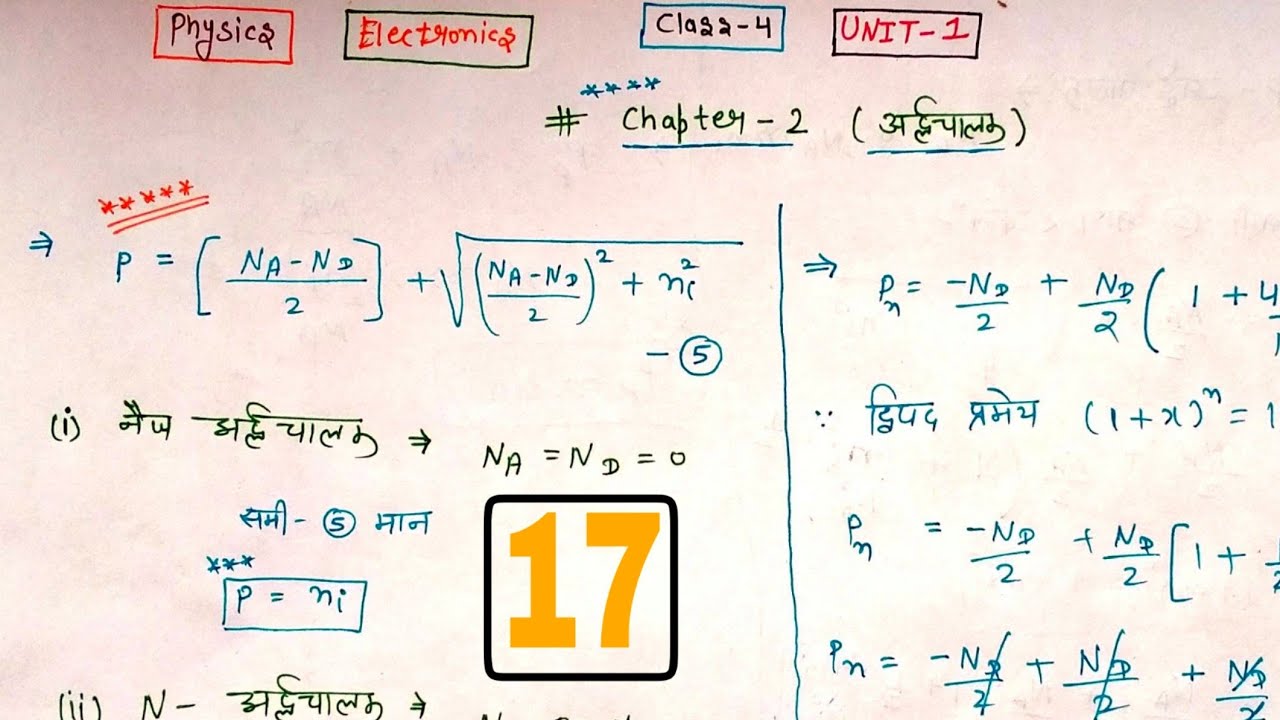 Physics Electronics Class-4 UNIT-1
****
# Chapter-2 (अर्द्धचालक)
*****
⇒ P = [ (N_A - N_D)/2 ] + √( ((N_A - N_D)/2)² + n_i² )
- ⑤
(i) नैज अर्द्धचालक ⇒ N_A = N_D = 0
समी- ⑤ मान
***
P = n_i
17
(ii) N- अर्द्धचालक ⇒
⇒ P_n = -N_D/2 + N_D/2 ( 1 + 4
∵ द्विपद प्रमेय (1+x)^n = 1
P_n = -N_D/2 + N_D/2 [ 1 +
P_n = -N_D/2 + N_D/2 + N_D/2